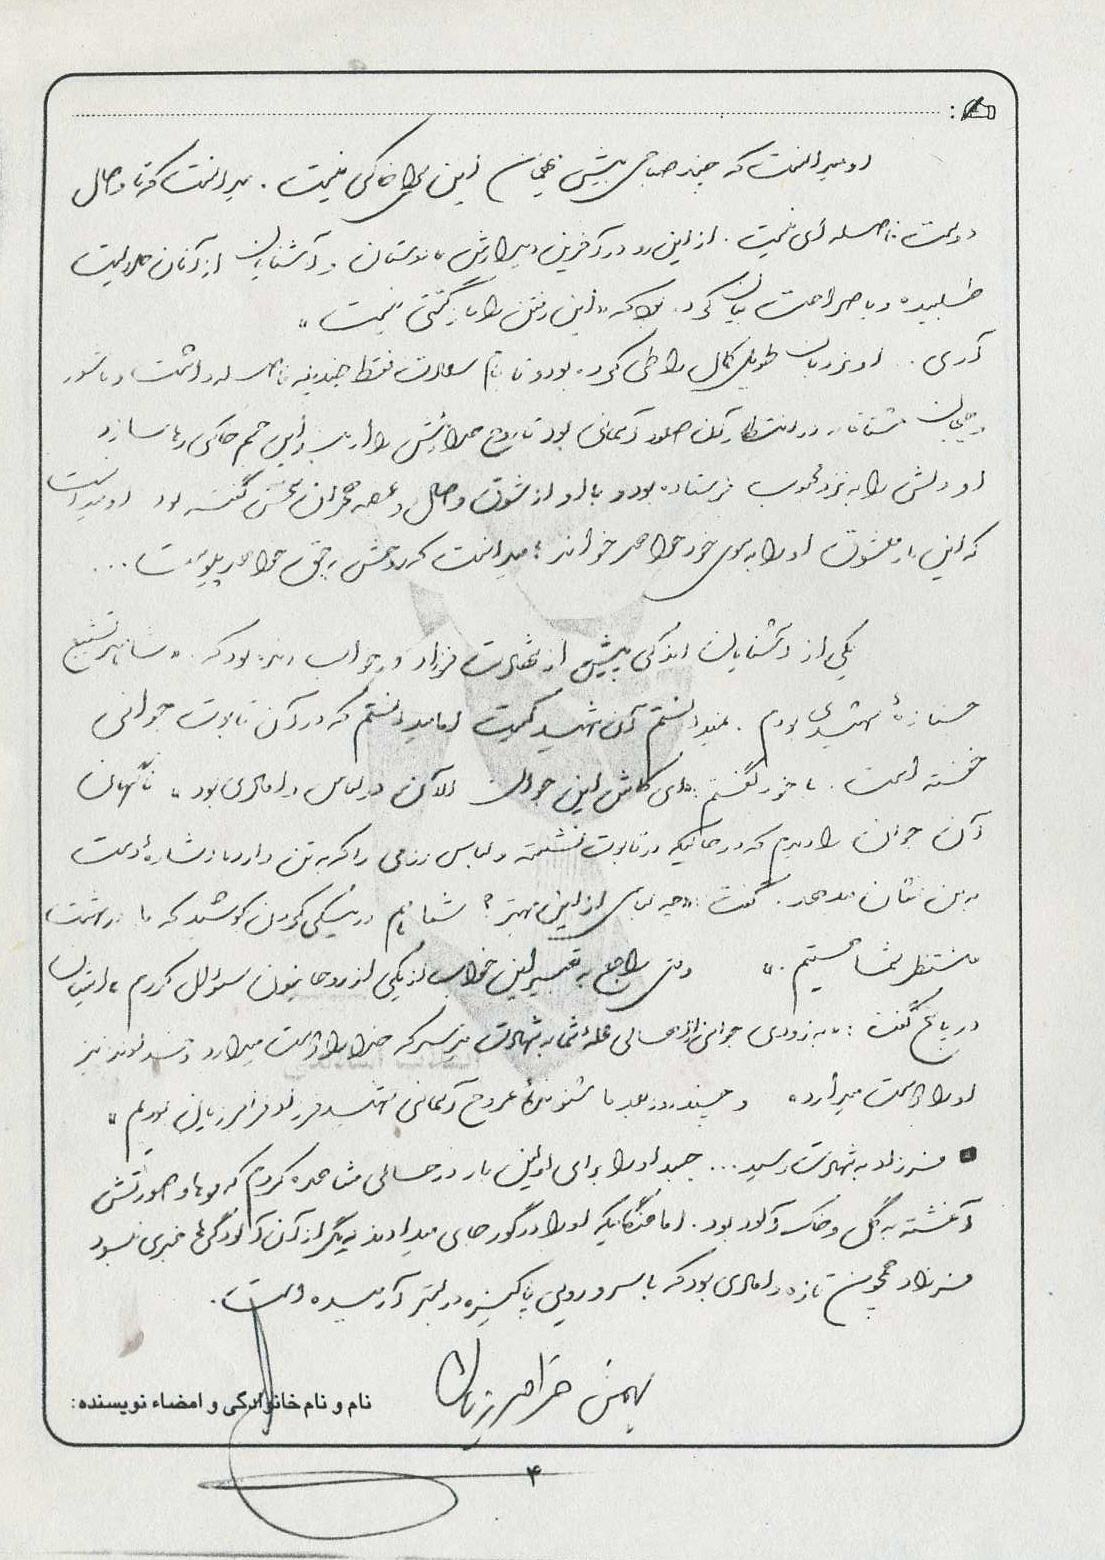 او میدانست که چند صباحی بیش میهمان این سرای خاکی نیست. میدانست که تا وصال
دوست فاصله‌ای نیست. از این رو در آخرین دیدارش با دوستان و آشنایان از آنان حلالیت
طلبیده و با صراحت بیان کرد. که «این رفتن را بازگشتی نیست»
آری. او نردبان طویل کمال را طی کرده بود و تا بام سعادت فقط چند پله فاصله داشت و با شور
و هیجان مشتاقانه در انتظار آن صعود آسمانی بود تا روح خدائیش را از این جسم خاکی رها سازد
او دلش را به نزد محبوب فرستاده بود و با او از شوق وصل و غصه هجران سخن گفته بود او میدانست
که این بار معشوق او را به سوی خود خواهد خواند؛ میدانست که روحش به حق خواهد پیوست...
یکی از آشنایان اندکی پیش از شهادت فرزاد در خواب دیده بود که: «شاهد تشییع
جنازهٔ شهیدی بودم. نمیدانستم آن شهید کیست اما میدانستم که در آن تابوت جوانی
خفته است. با خود گفتم: «ای کاش این جوان الآن در لباس دامادی بود» ناگهان
آن جوان را دیدم که در حالیکه در تابوت نشسته و لباس رزمی را که به تن دارد با اشارهٔ دست
به من نشان میدهد. گفت: «چه لباسی از این بهتر؟ شما هم در نیکی کردن کوشید که ما در بهشت
منتظر شما هستیم.» وقتی راجع به تفسیر این خواب از یکی از روحانیون سؤال کردم، ایشان
در پاسخ گفت: «به زودی جوانی از اهالی محلهٔ شما به شهادت میرسد که خدا را دوست میدارد و خداوند نیز
او را دوست میدارد» و چند روز بعد ما شنوندهٔ عروج آسمانی شهید فرزاد فرامرزیان بودیم»
▪ فرزاد به شهادت رسید... جسد او را برای اولین بار در حالی مشاهده کردم که موها و صورتش
آغشته به گل و خاک آلود بود. اما هنگامیکه او را در گور جای میدادند دیگر از آن آلودگی‌ها خبری نبود
فرزاد همچون تازه دامادی بود که با سر و رویی پاکیزه در بستر آرمیده است.
بهمن فرامرزیان
نام و نام خانوادگی و امضاء نویسنده:
۴